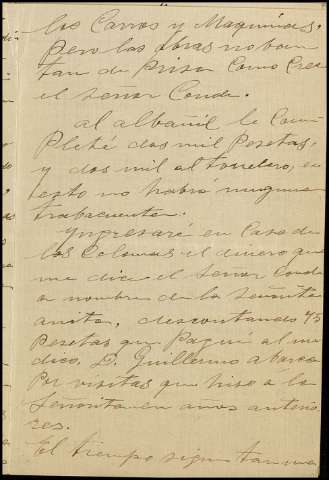 los Carros y Maquinas.
Pero las obras no ban
tan de prisa como cree
el señor Conde.
al albañil le Com
pleté dos mil Pesetas,
y dos mil al tonelero, en
esto no habra ninguna
trabacuenta.
Yngresaré en Casa de
los Colomas el dinero que
me dice el señor Conde
a nombre de la señorita
anita, descontando 45
pesetas que pague al me
dico. D. Guillermo abarca
por visitas que hiso a la
Señorita en años anterio
res.
El tiempo sigue tan